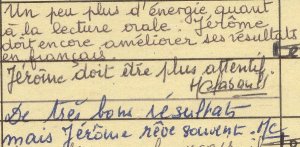 Un peu plus d'énergie quant
à la lecture orale. Jérôme
doit encore améliorer ses résultats
en français.
Jérôme doit être plus attentif.
De très bons résultats
mais Jérôme rêve souvent. MC